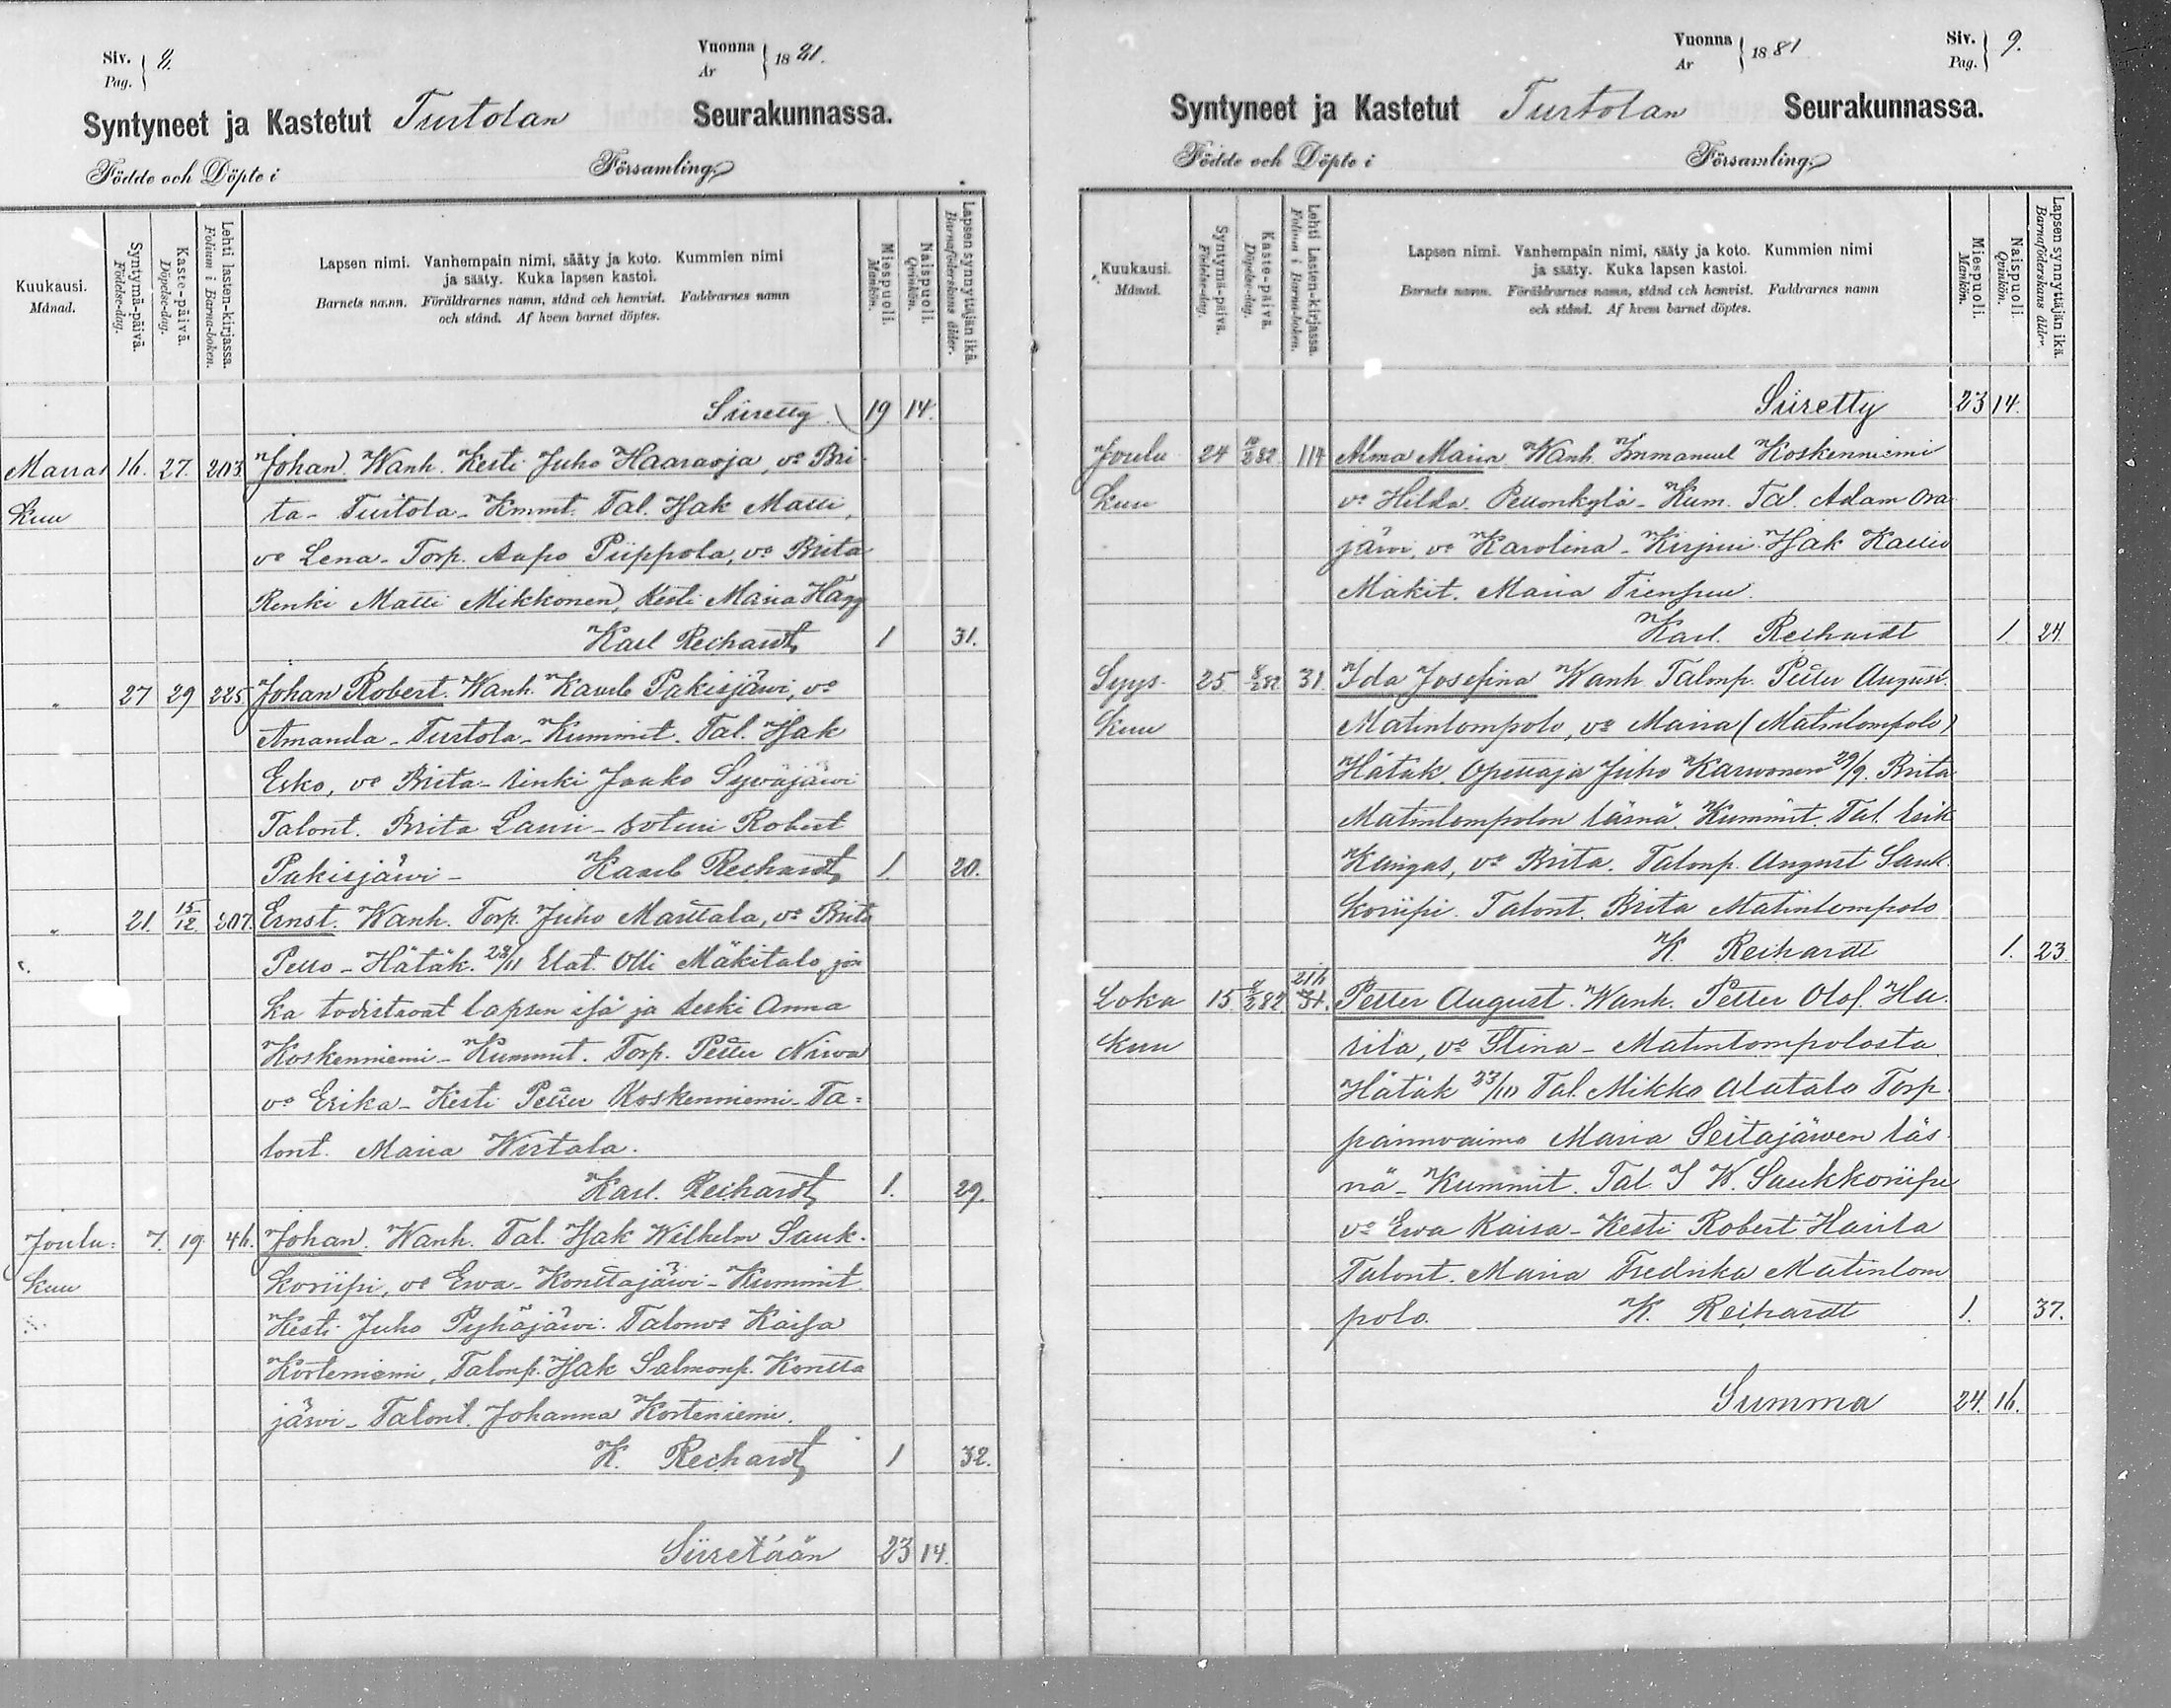 Siv.
Pag. 8.
Vuonna
Ar 1881.
Syntyneet ja Kastetut Turtolan Seurakunnassa.
Födde och Döpte i Församling.
Kuukausi.
Månad.
Syntymä-päivä.
Födelse-dag.
Kaste-päivä.
Döpelse-dag.
Lehti lasten-kirjassa.
Folium i Barna-boken.
Lapsen nimi. Vanhempain nimi, sääty ja koto. Kummien nimi
ja sääty. Kuka lapsen kastoi.
Barnets namn. Föräldrarnes namn, stånd och hemvist. Faddrarnes namn
och stånd. Af hvem barnet döptes.
Miespuoli.
Mankön.
Naispuoli.
Qvinkön.
Lapsen synnyttäjän ikä.
Barnaföderskans ålder.
Siiretty 19 14.
Marras 16. 27. 203 Johan. Wanh. Kesti Juho Haaraoja, vo Bri-
kuu ta - Turtola - Kmmt. Tal. Isak Matti,
vo Lena - Torp. Aapo Piippola, vo Brita
Renki Matti Mikkonen, Kesti Maria Hägg
Karl Reihardt 1 31.
" 27 29 225. Johan Robert. Wanh. Kaarle Pakisjärvi, vo
Amanda - Turtola - Kummit. Tal. Isak
Esko, vo Brita - Renki Jaako Syväjärvi
Talont. Brita Lauri - Soturi Robert
Pakisjärvi - Kaarle Reihardt 1. 20.
" 21. 15/12. 207. Ernst. Wanh. Torp. Juho Marttala, vo Brita
Pello - Hätäk. 28/11 Elat. Olli Mäkitalo jon
ka todistavat lapsen isä ja leski Anna
Koskenniemi - Kummit. Torp. Petter Nirva
vo Erika - Kesti Petter Koskenniemi - Ta=
lont. Maria Wirtala.
Karl. Reihardt 1. 29.
Joulu= 7. 19. 46. Johan. Wanh. Tal. Isak Wilhelm Sauk-
kuu koriipi, vo Ewa - Konttajärvi - Kummit.
Kesti Juho Pyhäjärvi. Talonvo Kaisa
Korteniemi, Talonp. Isak Salmonp. Kontta
järvi - Talont. Johanna Korteniemi.
K. Reihardt 1 32.
Siiretään 23 14.
Vuonna
Ar 1881
Siv.
Pag. 9.
Syntyneet ja Kastetut Turtolan Seurakunnassa.
Födde och Döpte i Församling.
Kuukausi.
Månad.
Syntymä-päivä.
Födelse-dag.
Kaste-päivä.
Döpelse-dag.
Lehti Lasten-kirjassa.
Folium i Barna-boken.
Lapsen nimi. Vanhempain nimi, sääty ja koto. Kummien nimi
ja sääty. Kuka lapsen kastoi.
Barnets namn. Föräldrarnes namn, stånd och hemvist. Faddrarnes namn
och stånd. Af hvem barnet döptes.
Miespuoli.
Mankön.
Naispuoli.
Qvinkön.
Lapsen synnyttäjän ikä.
Barnaföderskans ålder.
Siiretty 23 14.
Joulu 24 114 Alma Maria Wanh. Immanuel Koskenniemi
kuu vo Hilda. Pellonkylä - Kum. Tal. Adam Ora
järvi, vo Karolina - Kirjuri Isak Kallio
Mäkit. Maria Tiensuu.
Karl. Reihardt 1 24.
Syys- 25 31. Ida Josefina Wanh. Talonp. Petter August
kuu Matinlompolo, vo Maria (Matinlompolo)
Hätäk. Opettaja Juho Karvonen 29/9. Brita
Matinlompolon läsnä. Kummit. Tal. Erik
Kangas, vo Brita. Talonp. August Sauk-
koriipi. Talont. Brita Matinlompolo
K. Reihardt 1. 23.
Loka 15. 216 31. Petter August. Wanh. Petter Olof. Ha-
kuu rila, vo Stina - Matinlompolosta.
Hätäk 23/10 Tal. Mikko Alatalo Torp
pärinvaimo Maria Seitajärven läs-
nä - Kummit. Tal. I W. Saukkoriipi
vo Ewa Kaisa - Kesti Robert Harila
Talont. Maria Fredrika Matinlom
polo. K. Reihardt 1. 37.
Summa 24. 16.